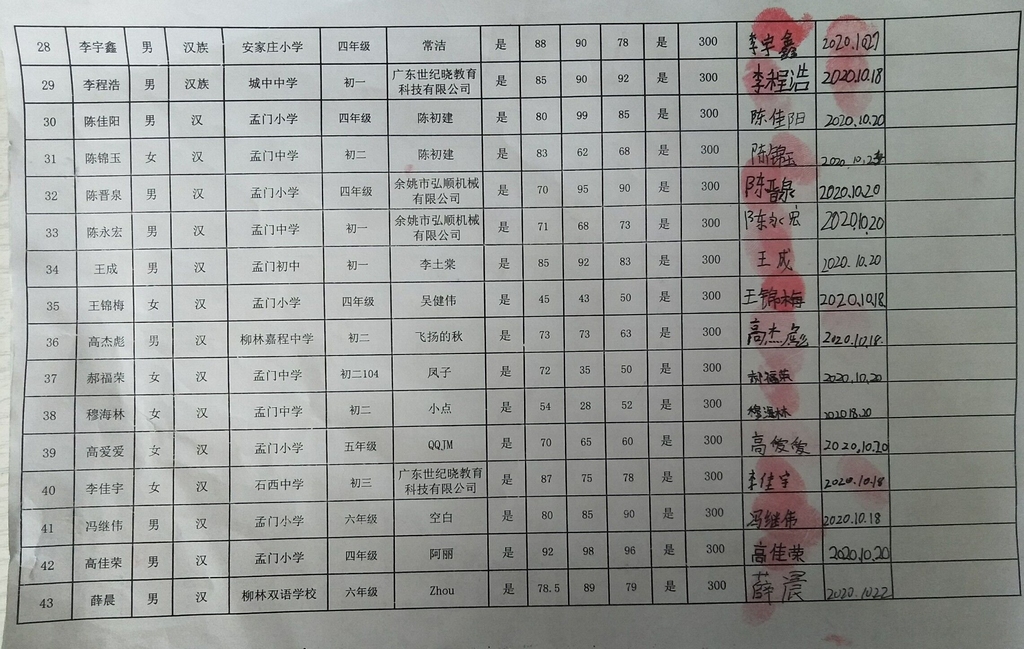 28 李宇鑫 男 汉族 安家庄小学 四年级 常洁 是 88 90 78 是 300 李宇鑫 2020.10.27
29 李程浩 男 汉族 城中中学 初一 广东世纪晓教育科技有限公司 是 85 90 92 是 300 李程浩 2020.10.18
30 陈佳阳 男 汉 孟门小学 四年级 陈初建 是 80 99 85 是 300 陈佳阳 2020.10.20
31 陈锦玉 女 汉 孟门中学 初二 陈初建 是 83 62 68 是 300 陈锦玉
32 陈晋泉 男 汉 孟门小学 四年级 余姚市弘顺机械有限公司 是 70 95 90 是 300 陈晋泉 2020.10.20
33 陈永宏 男 汉 孟门中学 初一 余姚市弘顺机械有限公司 是 71 68 73 是 300 陈永宏 2020.10.20
34 王成 男 汉 孟门初中 初一 李土棠 是 85 92 83 是 300 王成 2020.10.20
35 王锦梅 女 汉 孟门小学 四年级 吴健伟 是 45 43 50 是 300 王锦梅 2020.10.18
36 高杰彪 男 汉 柳林嘉程中学 初二 飞扬的秋 是 73 73 63 是 300 高杰彪 2020.10.18.
37 郝福荣 女 汉 孟门中学 初二104 凤子 是 72 35 50 是 300 郝福荣 2020.10.20
38 穆海林 女 汉 孟门中学 初二 小点 是 54 28 52 是 300 穆海林
39 高爱爱 女 汉 孟门小学 五年级 QQJM 是 70 65 60 是 300 高爱爱 2020.10.20
40 李佳宇 女 汉 石西中学 初三 广东世纪晓教育科技有限公司 是 87 75 78 是 300 李佳宇 2020.10.18
41 冯继伟 男 汉 孟门小学 六年级 空白 是 80 85 90 是 300 冯继伟 2020.10.18
42 高佳荣 男 汉 孟门小学 四年级 阿丽 是 92 98 96 是 300 高佳荣 2020.10.20
43 薛晨 男 汉 柳林双语学校 六年级 Zhou 是 78.5 89 79 是 300 薛晨 2020.10.22